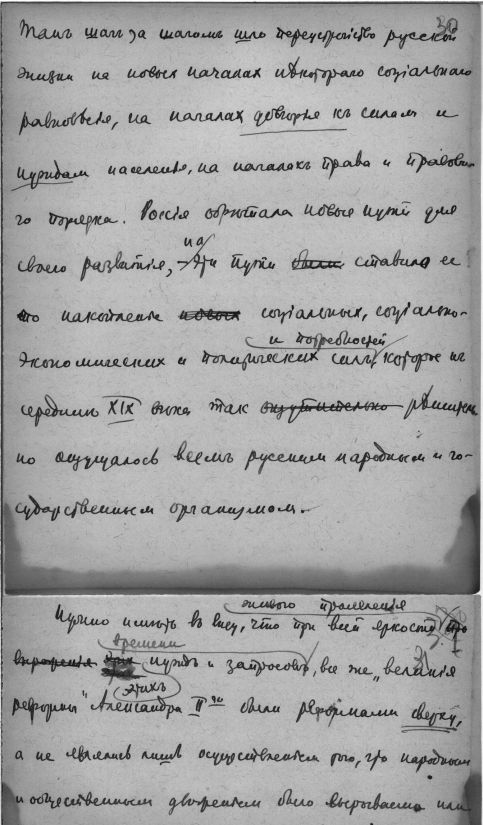 30
Такъ шагъ за шагомъ шло переустройство русской
жизни на новыхъ началахъ нѣкотораго соціальнаго
равновѣсія, на началахъ довѣрія къ силамъ и
нуждамъ населенія, на началахъ права и правова-
го порядка. Россія обрѣтала новые пути для
своего развитія, на эти пути ставило ее
то накопленіе новыхъ соціальныхъ, соціально-
и потребностей
экономическихъ и политическихъ силъ, которое къ
серединѣ XIX вѣка такъ ощутительно рѣшитель-
но ощущалось всемъ русскимъ народнымъ и го-
сударственнымъ организмомъ.
живого проявленія
Нужно имѣть въ виду, что при всей яркости
времени
выраженія нуждъ и запросовъ, все же „великія
этихъ
реформы" Александра II го были реформами сверху,
а не являлись лишь осуществленіемъ того, что народнымъ
и общественнымъ движеніемъ было вырываемо или